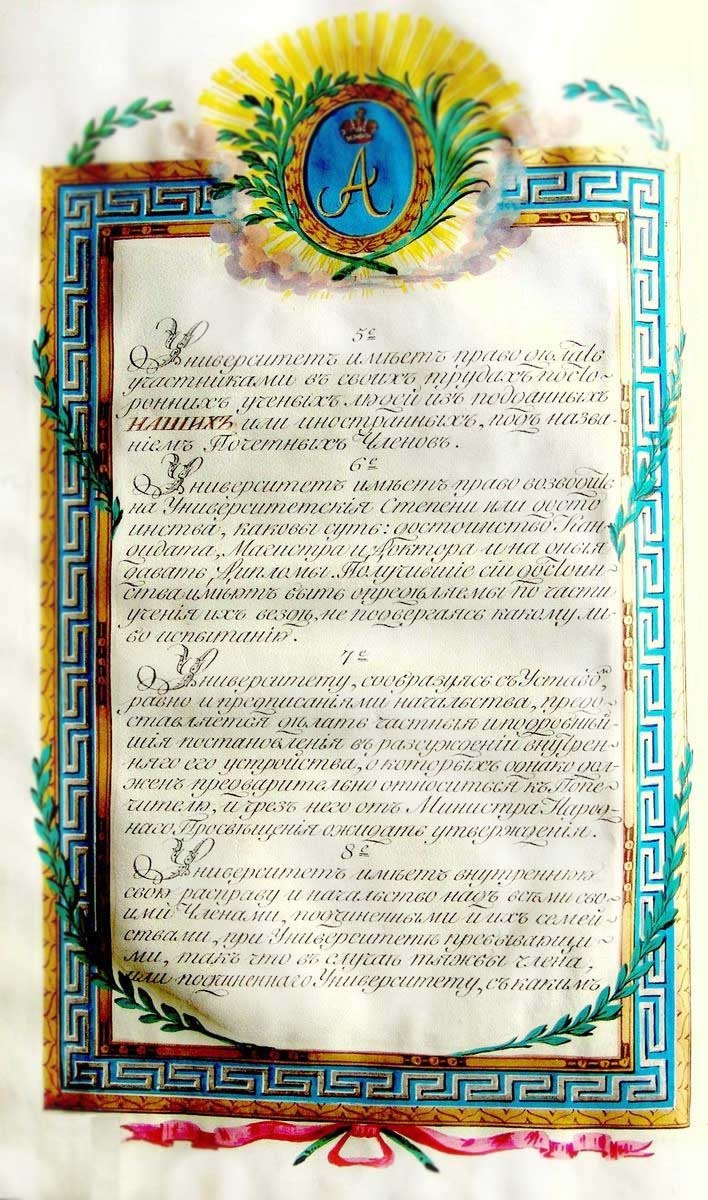 А
5е
Университетъ имѣетъ право дѣлать
участниками въ своихъ трудахъ посто-
роннихъ ученыхъ людей изъ подданныхъ
НАШИХЪ или иностранныхъ, подъ назва-
ніемъ Почетныхъ Членовъ.
6е
Университетъ имѣетъ право возводить
на Университетскія Степени или досто-
инства, каковы суть: достоинство Кан-
дидата, Магистра и Доктора и на оныя
давать Дипломы. Получившіе сіи достоин-
ства имѣютъ быть опредѣляемы по части
ученія ихъ вездѣ, не подвергаясь какому ли-
бо испытанію.
7е
Университету, сообразуясь съ Уставомъ,
равно и предписаніями начальства, предо-
ставляется дѣлать частныя и подробнѣй-
шія постановленія въ разсужденіи внутрен-
няго его устройства, о которыхъ однако дол-
женъ предварительно относиться къ Попе-
чителю, и чрезъ него отъ Министра Народ-
наго Просвѣщенія ожидать утвержденія.
8е
Университетъ имѣетъ внутреннюю
свою расправу и начальство надъ всѣми сво-
ими Членами, подчиненными и ихъ семей-
ствами, при Университетѣ пребывающи-
ми, такъ что въ случаѣ тяжбы члена,
или подчиненнаго Университету, съ какимъ